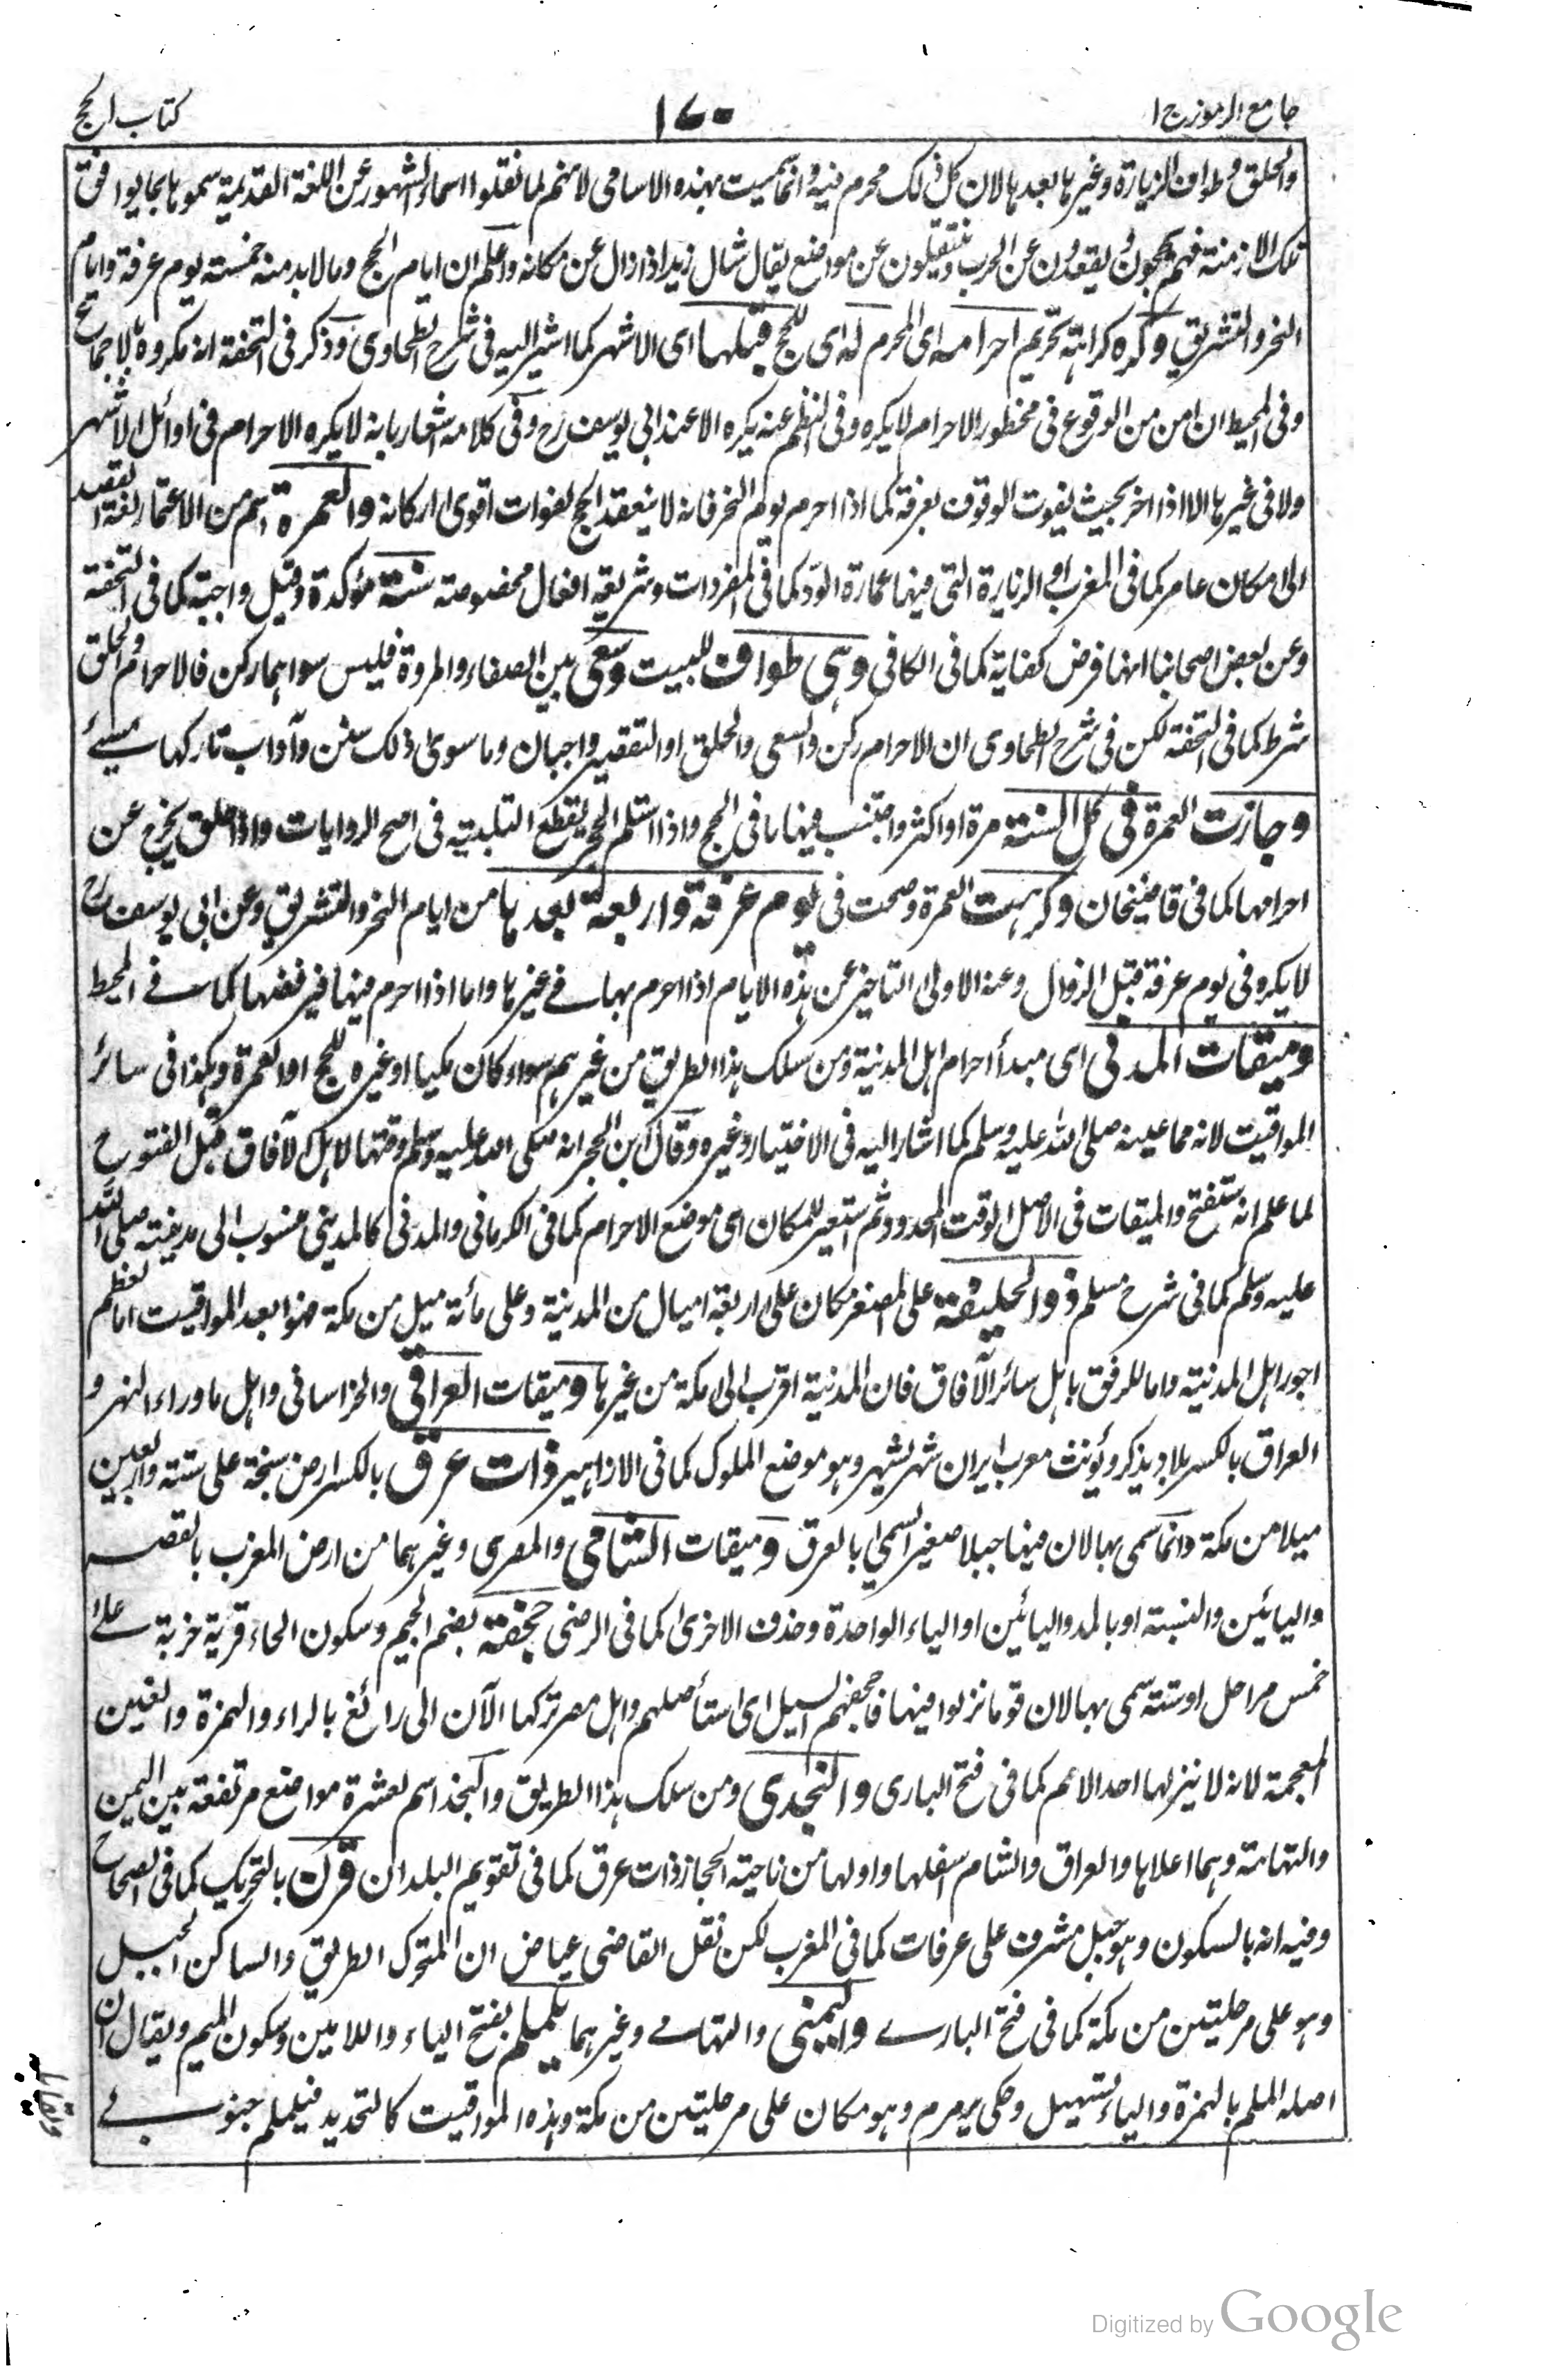 جامع الرموز ج ۱
۱۷۰
كتاب الحج
والحلق وطواف الزيارة وغيرها بعدها لان كل ذلك محرم فيه وانما سميت بهذه الاسامى لانهم لما نقلوا اسماء الشهور عن اللغة القديمة سموها بما يوافق
تلك الازمنة فهم يحجون ويقعدون عن الحرب وينتقلون عن مواضع يقال شال زيد اذا زال عن مكانه واعلم ان ايام الحج وما لا بد منه خمسة يوم عرفة وايام
النحر والتشريق وكره كراهة تحريم احرامه اى المحرم له اى للحج قبلها اى الاشهر كما اشير اليه فى شرح الطحاوى وذكر فى التحفة انه مكروه بالاجماع
وفى المحيط ان امن من الوقوع فى محظور الاحرام لا يكره وفى النظم عنه يكره الا عند ابى يوسف رح وفى كلامه اشعار بانه لا يكره الاحرام فى اوائل الاشهر
ولا فى غيرها الا اذا اخر بحيث يفوت الوقوف بعرفة كما اذا احرم يوم النحر فانه لا ينعقد الحج لفوات اقوى اركانه والعمرة اسم من الاعتمار لغة القصد
الى مكان عامر كما فى المغرب او الزيارة التى فيها عمارة الود كما فى المفردات وشريعة افعال مخصوصة سنة مؤكدة وقيل واجبة كما فى التحفة
وعن بعض اصحابنا انها فرض كفاية كما فى الكافى وهى طواف للبيت وسعى بين الصفاء والمروة فليس سواهما ركن فالاحرام والحلق
شرط كما فى التحفة لكن فى شرح الطحاوى ان الاحرام ركن والسعى والحلق او التقصير واجبان وما سوى ذلك سنن وآداب تاركها مسيئ
وجازت العمرة فى كل السنة مرة او اكثر واجتنب فيها ما فى الحج واذا استلم الحجر يقطع التلبية فى اصح الروايات واذا حلق يخرج عن
احرامها كما فى قاضيخان وكرهت العمرة وصحت فى يوم عرفة واربعة بعدها من ايام النحر والتشريق وعن ابى يوسف رح
لا يكره فى يوم عرفة قبل الزوال وعنه الاولى التاخير عن هذه الايام اذا احرم بها فى غيرها واما اذا احرم فيها فيرفضها كما فى المحيط
وميقات المدنى اى مبدأ احرام اهل المدينة ومن سلك هذا الطريق من غيرهم سواء كان مكيا او غيره للحج او العمرة وهكذا فى سائر
المواقيت لانه مما عينه صلى الله عليه وسلم كما اشار اليه فى الاختيار وغيره وقال ابن الحجر انه صلى الله عليه وسلم وقتها لاهل الآفاق قبل الفتوح
لما علم انه ستفتح والميقات فى الاصل الوقت المحدود ثم استعير للمكان اى موضع الاحرام كما فى الكرمانى والمدنى كالمدينى منسوب الى مدينته صلى الله
عليه وسلم كما فى شرح مسلم ذو الحليفة على المصغر مكان على اربعة اميال من المدينة وعلى مائة ميل من مكة فهو ابعد المواقيت اما لعظم
اجور اهل المدينة واما للرفق باهل سائر الآفاق فان المدينة اقرب الى مكة من غيرها وميقات العراقى والخراسانى واهل ما وراء النهر و
العراق بالكسر بلاد يذكر ويؤنث معرب ايران شهر لشهر وهو موضع الملوك كما فى الازاهير ذات عرق بالكسر ارض سبخة على ستة واربعين
ميلا من مكة وانما سمى بها لان فيها جبلا صغيرا سمى بالعرق وميقات الشامى والمصرى وغيرهما من ارض المغرب بالقصر
واليائين والنسبة او بالمد واليائين او الياء الواحدة وحذف الاخرى كما فى الرضى جحفة بضم الجيم وسكون الحاء قرية خربة على
خمس مراحل او ستة سمى بها لان قوما نزلوا فيها فاجحفهم السيل اى استأصلهم واهل مصر تركها الآن الى رائغ بالراء والهمزة والغين
المعجمة لانه لا ينزلها احد الاعم كما فى فتح البارى والنجدى ومن سلك هذا الطريق والنجد اسم لعشرة مواضع مرتفعة بين اليمن
والتهامة وهما اعلاها والعراق والشام اسفلها واولها من ناحية الحجاز ذات عرق كما فى تقويم البلدان قرن بالتحريك كما فى الصحاح
وفيه انه بالسكون وهو جبل مشرف على عرفات كما فى المغرب لكن نقل القاضى عياض ان المتحرك الطريق والساكن الجبل
وهو على مرحلتين من مكة كما فى فتح البارى واليمنى والتهامى وغيرهما يلملم بفتح الياء واللامين وسكون الميم ويقال ان
اصله الملم بالهمزة والياء تسهيل وحكى يرمرم وهو مكان على مرحلتين من مكة وهذه المواقيت كالتحديد فيلملم جنوبى
Digitized by Google